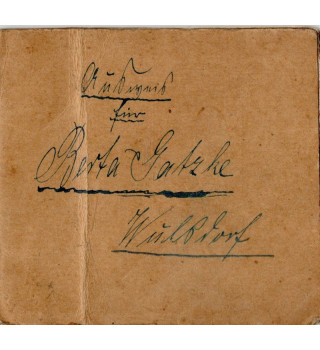 Ausweis
für
Berta Gatzke
Wulsdorf